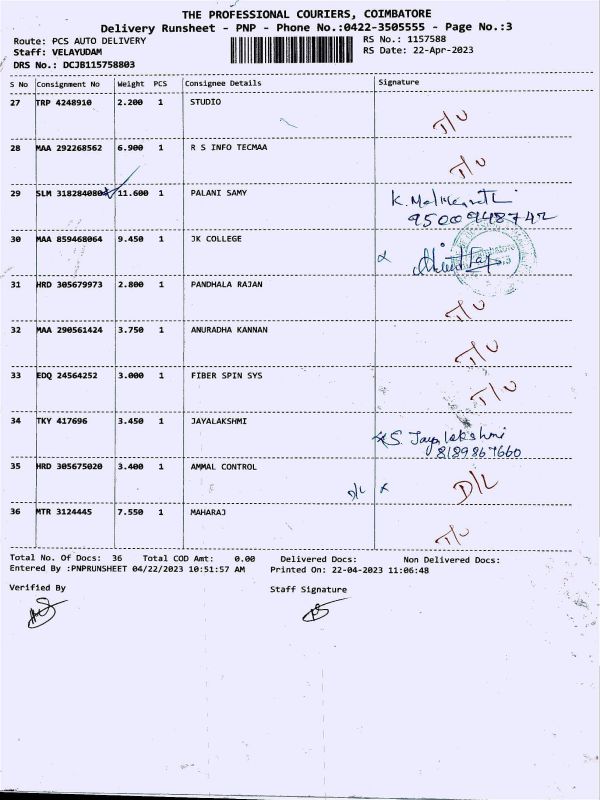 THE PROFESSIONAL COURIERS, COIMBATORE
Delivery Runsheet - PNP - Phone No.:0422-3505555 - Page No.:3
Route: PCS AUTO DELIVERY RS No.: 1157588
Staff: VELAYUDAM RS Date: 22-Apr-2023
DRS No.: DCJB115758803
S No Consignment No Weight PCS Consignee Details Signature
27 TRP 4248910 2.200 1 STUDIO T/U
28 MAA 292268562 6.900 1 R S INFO TECMAA T/U
29 SLM 318284080 11.600 1 PALANI SAMY K.
30 MAA 859468064 9.450 1 JK COLLEGE
31 HRD 305679973 2.800 1 PANDHALA RAJAN T/U
32 MAA 290561424 3.750 1 ANURADHA KANNAN T/U
33 EDQ 24564252 3.000 1 FIBER SPIN SYS T/U
34 TKY 417696 3.450 1 JAYALAKSHMI S. Jayalakshmi
8189867660
35 HRD 305675020 3.400 1 AMMAL CONTROL D/L x D/L
36 MTR 3124445 7.550 1 MAHARAJ T/U
Total No. Of Docs: 36 Total COD Amt: 0.00 Delivered Docs: Non Delivered Docs:
Entered By :PNPRUNSHEET 04/22/2023 10:51:57 AM Printed On: 22-04-2023 11:06:48
Verified By Staff Signature